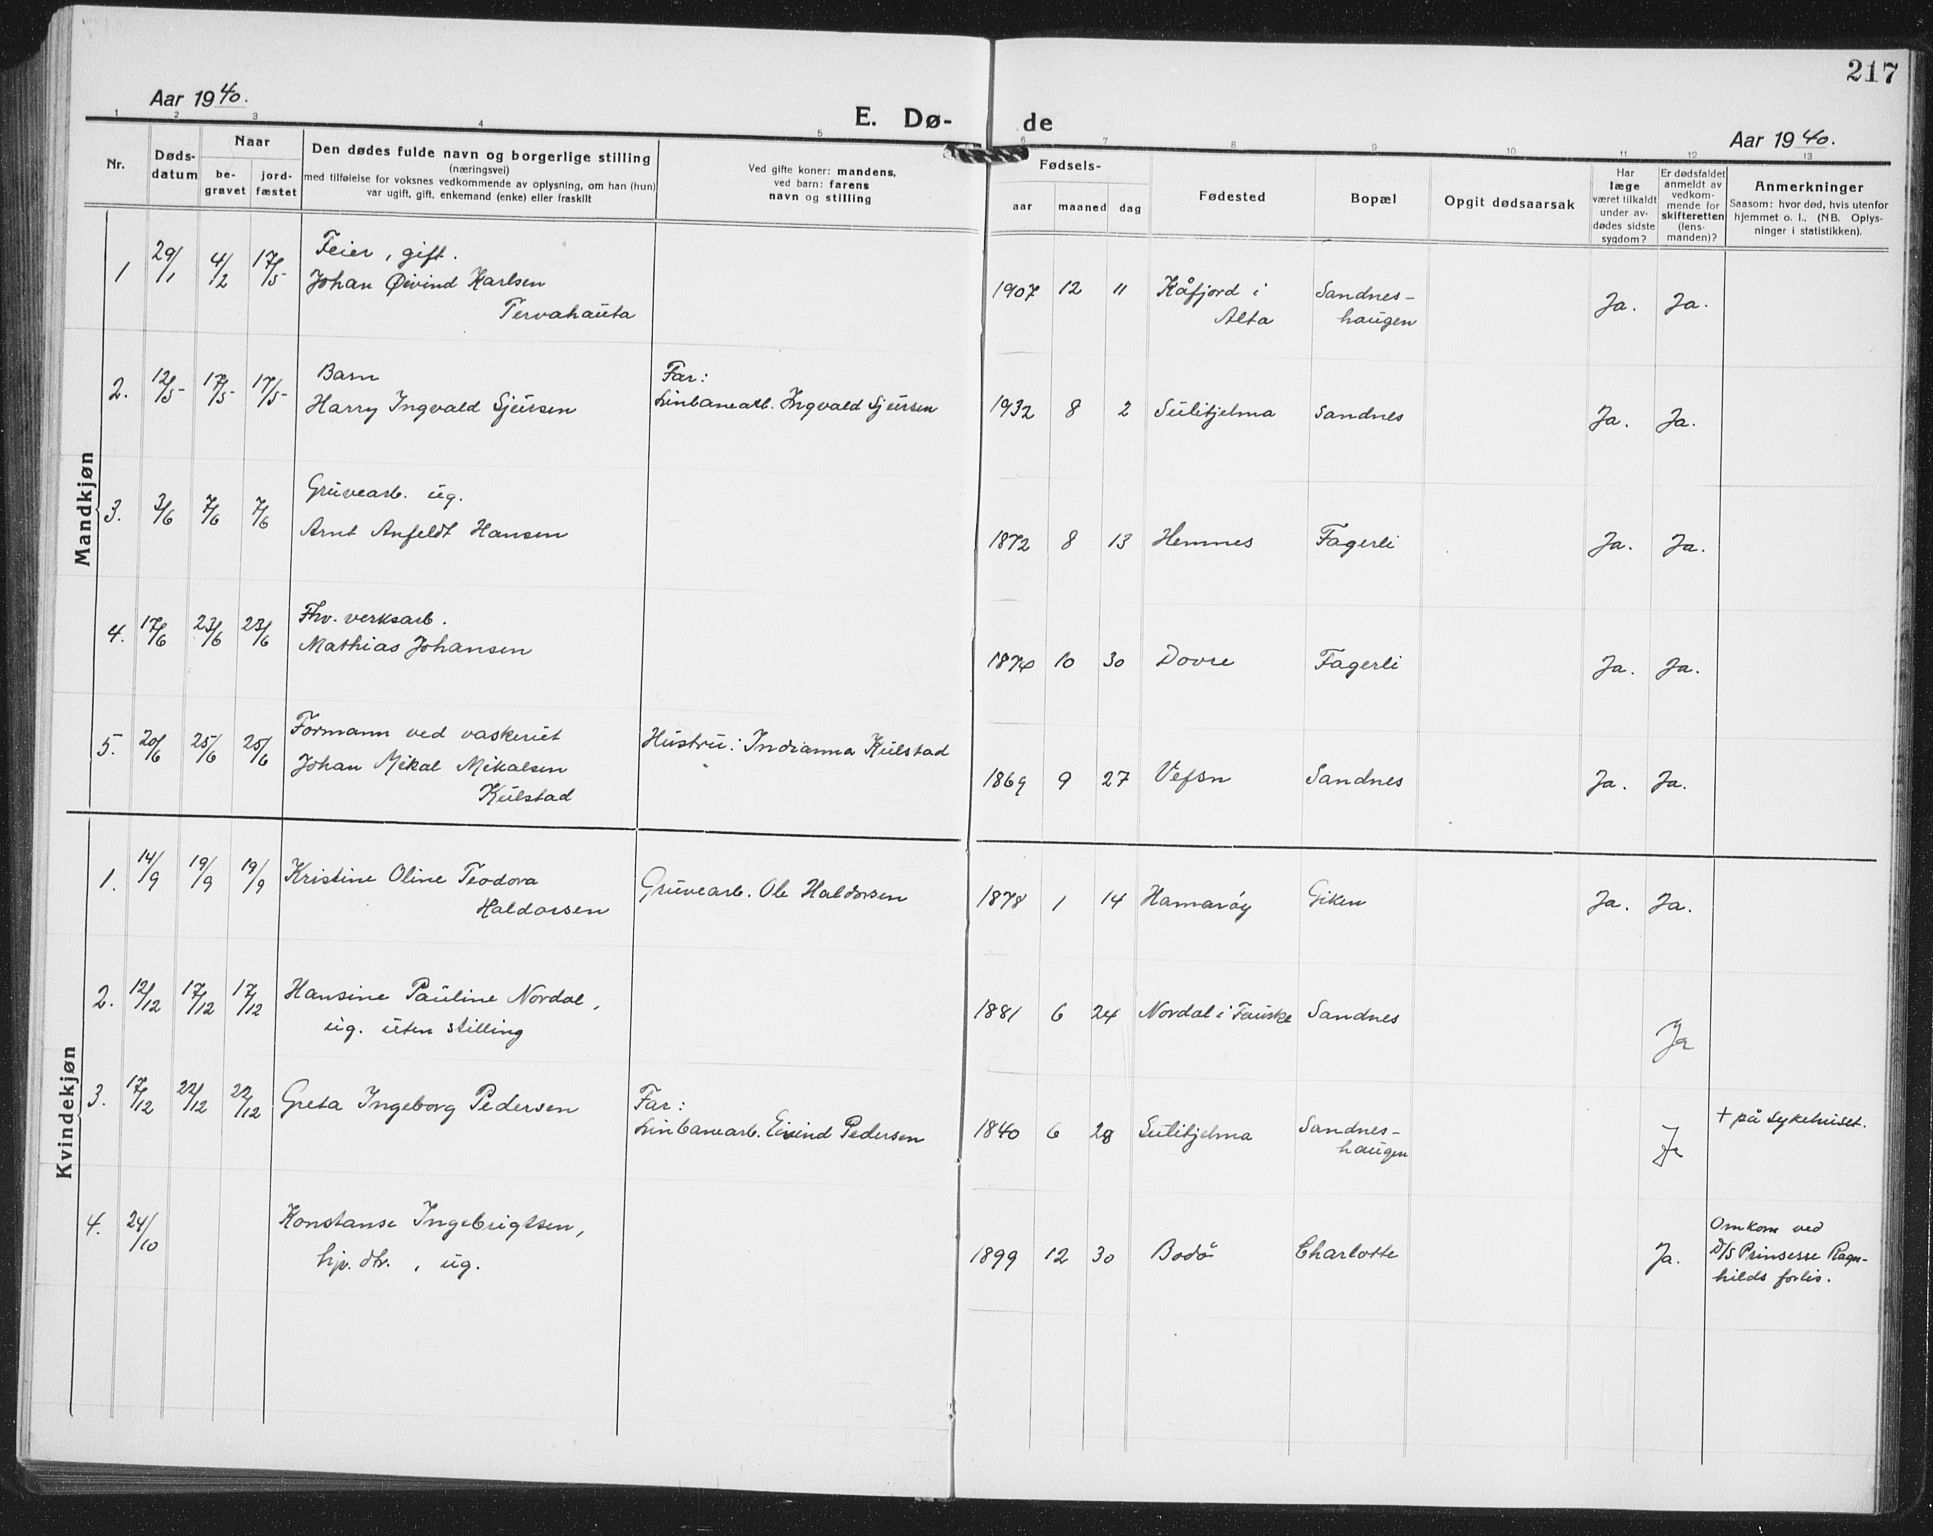 217
Aar 1940.
E. Dø-
de
Aar 1940.
1 2 3 4 5 6 7 8 9 10 11 12 13
Nr.
Døds-
datum
Naar
be-
gravet
jord-
fæstet
Den dødes fulde navn og borgerlige stilling
(næringsvei)
med tilføielse for voksnes vedkommende av oplysning, om han (hun)
var ugift, gift, enkemand (enke) eller fraskilt
Ved gifte koner: mandens,
ved barn: farens
navn og stilling
Fødsels-
aar
maaned
dag
Fødested
Bopæl
Opgit dødsaarsak
Har
læge
været tilkaldt
under av-
dødes sidste
sygdom?
Er dødsfaldet
anmeldt av
vedkom-
mende for
skifteretten
(lens-
manden)?
Anmerkninger
Saasom: hvor død, hvis utenfor
hjemmet o. l.. (NB. Oplys-
ninger i statistikken).
Mandkjøn
1 29/1 4/2 17/5 Feier, gift.
Johan Øivind Karlsen
Tervahauta
1907 12 11 Kåfjord i
Alta
Sandnes-
haugen
Ja. Ja.
2. 12/5 17/5 17/5 Barn
Harry Ingvald Sjursen
Far:
Linbanearb. Ingvald Sjursen
1932 8 2 Sulitjelma Sandnes Ja. Ja.
3. 3/6 7/6 7/6 Gruvearb. ug.
Arnt Anfeldt Hansen
1872 8 13 Hemnes Fagerli Ja. Ja.
4. 17/6 23/6 23/6 Fhv. verksarb.
Mathias Johansen
1874 10 30 Dovre Fagerli Ja. Ja.
5. 20/6 25/6 25/6 Formann ved vaskeriet
Johan Mikal Mikalsen
Kulstad
Hustru: Indianna Kulstad
1869 9 27 Vefsn Sandnes Ja. Ja.
Kvindekjøn
1. 14/9 19/9 19/9 Kristine Oline Teodora
Haldorsen
Gruvearb. Ole Haldorsen
1878 1 14 Hamarøy Giken Ja. Ja.
2. 12/12 17/12 17/12 Hansine Pauline Nordal,
ug. uten stilling
1881 6 24 Nordal i Fauske Sandnes Ja
3. 17/12 22/12 22/12 Greta Ingeborg Pedersen
Far:
Linbanearb. Eivind Pedersen
1840 6 28 Sulitjelma Sandnes-
haugen
Ja
+ på sykehuset.
4. 24/10 Konstanse Ingebrigtsen,
hp. dtr., ug.
1899 12 30 Bodø Charlotte Ja.
Omkom ved
D/S Prinsesse Ragn-
hilds forlis.